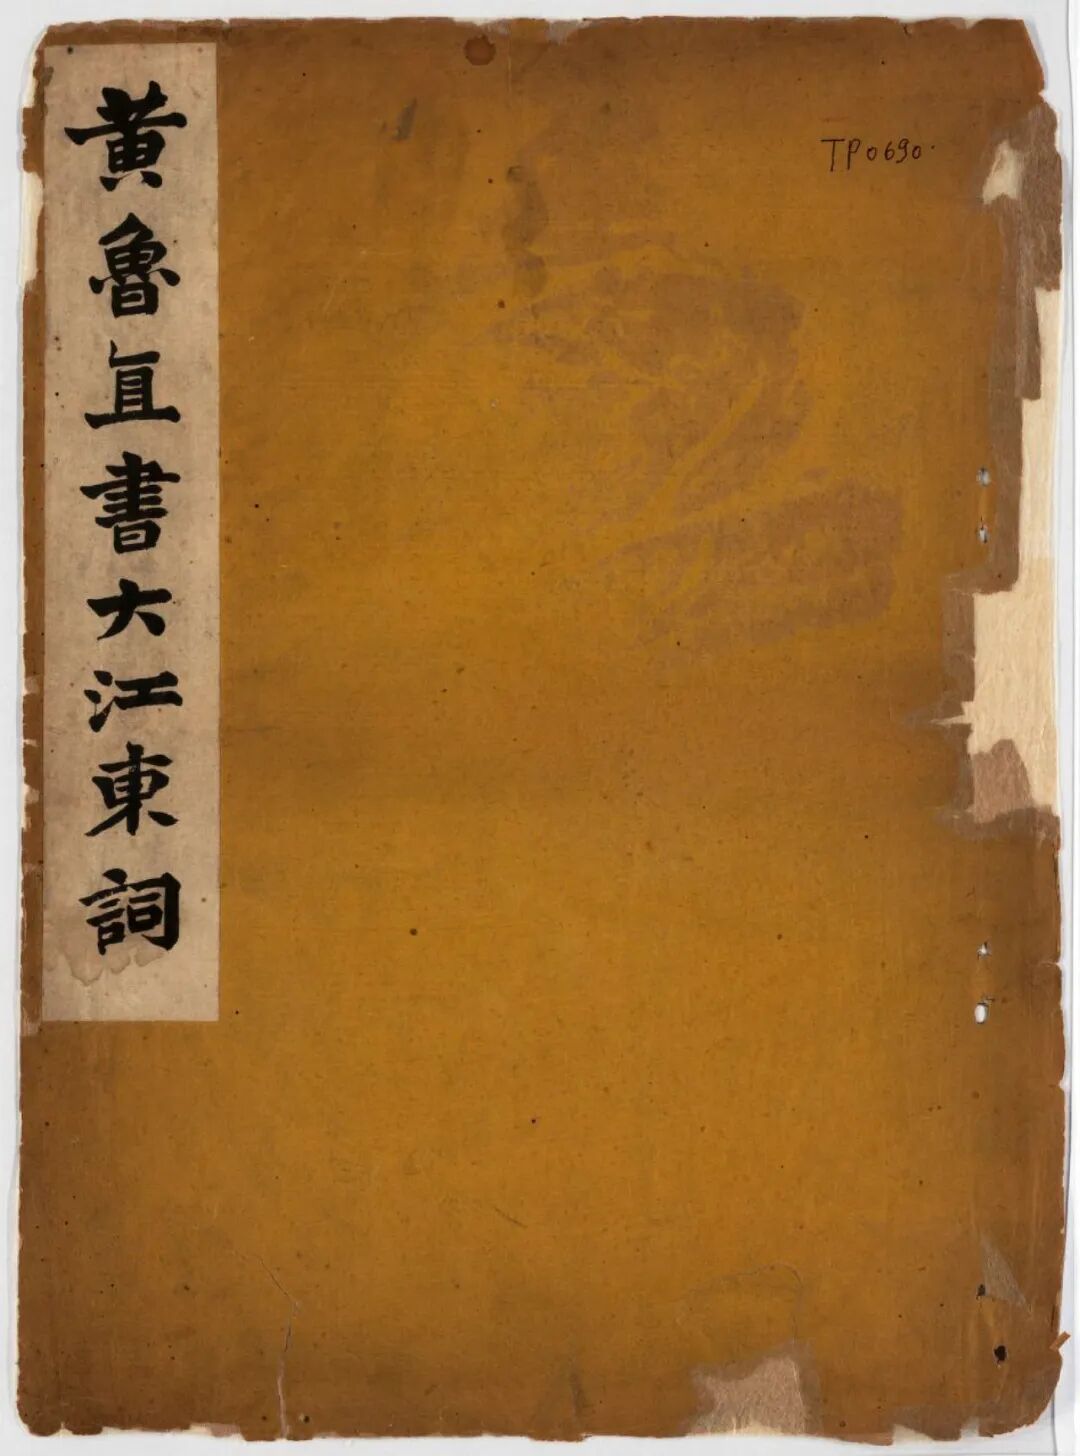 黄魯直書大江東詞
TP0690.